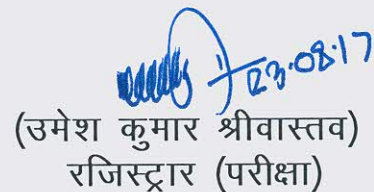 23.08.17
(उमेश कुमार श्रीवास्तव)
रजिस्ट्रार (परीक्षा)